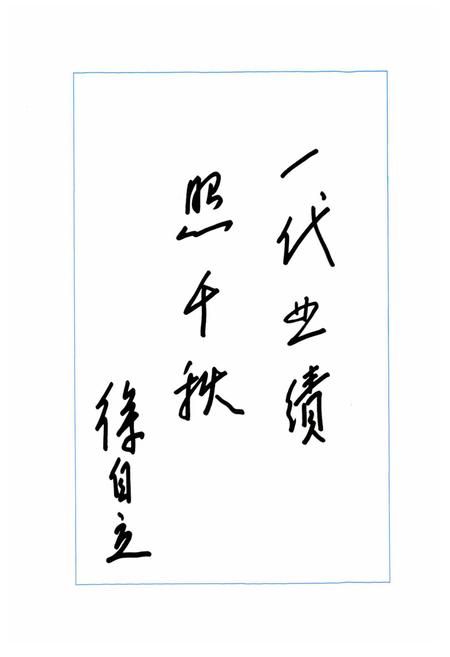 一代业绩
照千秋
徐自立